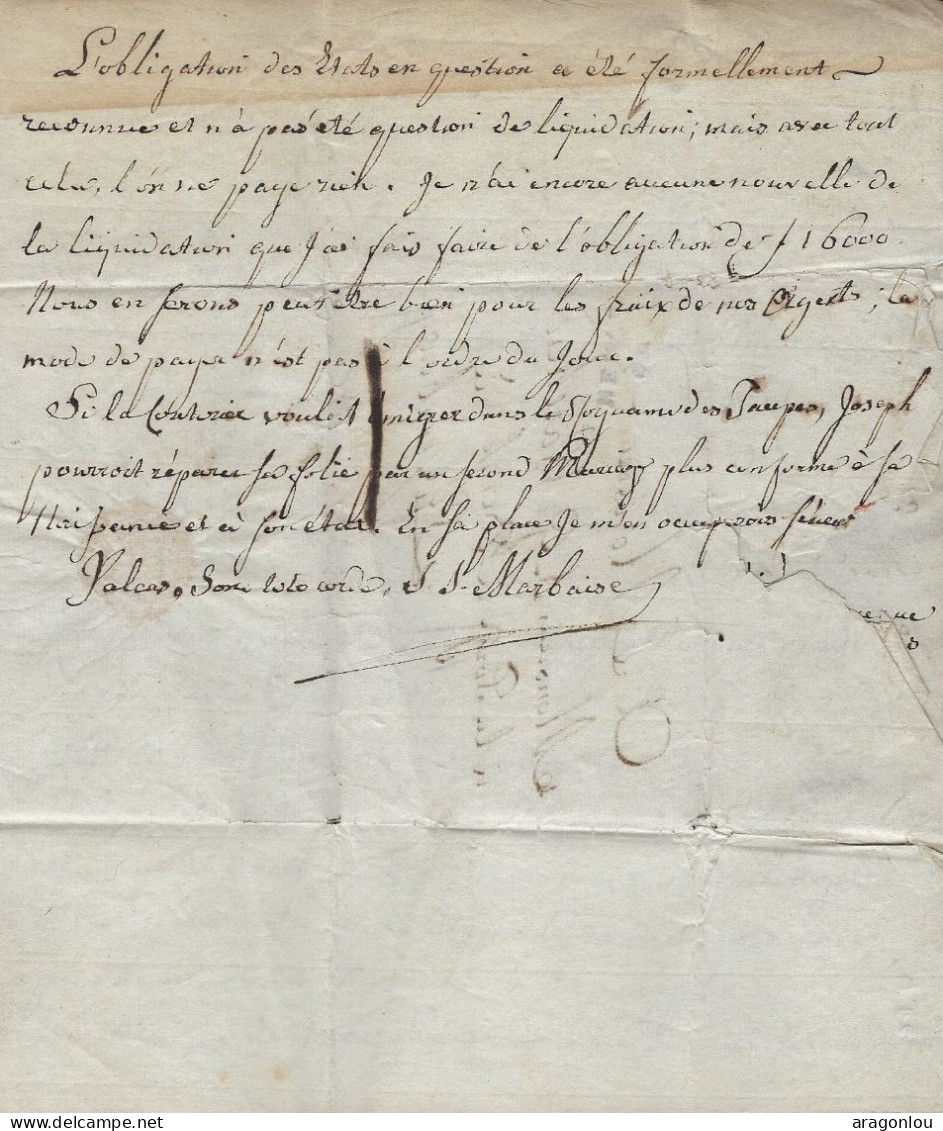 L'obligation des Etats en question a été formellement
reconnue et n'a pas été question de liquidation; mais avec tout
cela, l'on ne paye rien. Je n'ai encore aucune nouvelle de
la liquidation que J'ai fais faire de l'obligation de f 16000.
Nous en serons peut être bien pour les fraix de nos Agents; la
mode de payer n'est pas à l'ordre du Jour.
Si la vouloit émigrer dans le Royaume des Taupes, Joseph
pourroit réparer sa folie par un second Mariage plus conforme à sa
Naissance et à son état. En sa place Je m'en occuperois
Valeas, S. S. Marbaise
aragonlou
© aragonlou